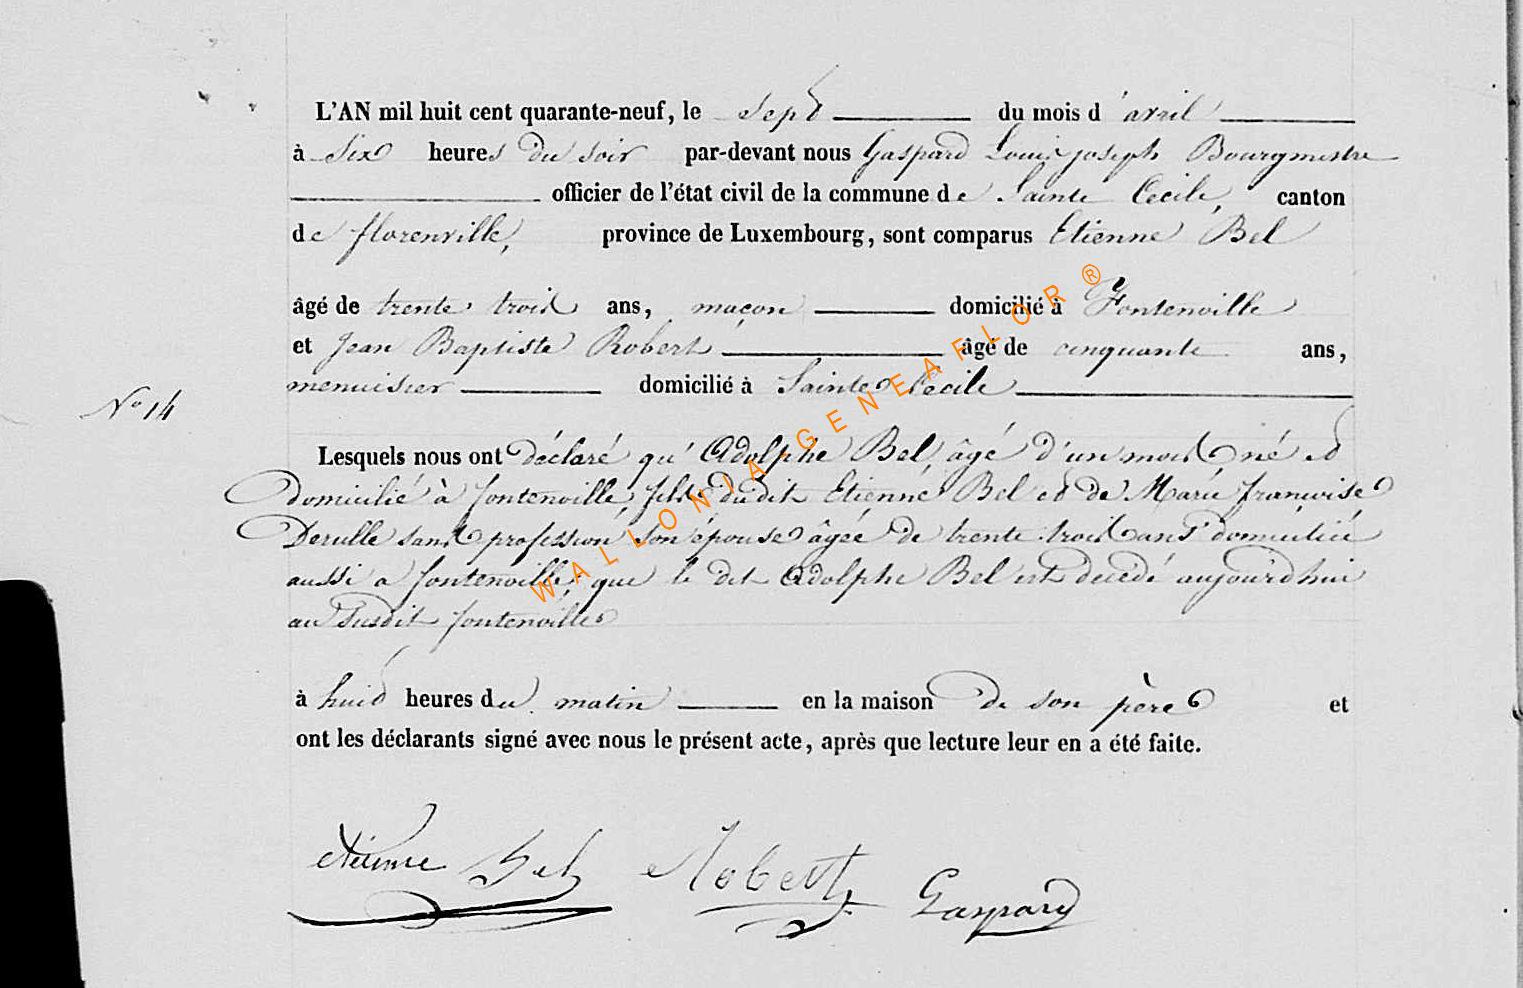 L'AN mil huit cent quarante-neuf, le sept du mois d'avril
à six heures du soir par-devant nous Gaspard Louis joseph Bourgmestre
officier de l'état civil de la commune de Sainte Cécile, canton
de florenville, province de Luxembourg, sont comparus Etienne Bel
âgé de trente trois ans, maçon domicilié à Fontenoille
et Jean Baptiste Robert âgé de cinquante ans,
menuisier domicilié à Sainte Cécile
N° 14
Lesquels nous ont déclaré qu'Adolphe Bel, âgé d'un mois né et
domicilié à fontenoille, fils dudit Etienne Bel et de Marie françoise
Derulle sans profession, son épouse âgée de trente trois ans domiciliée
aussi a fontenoille, que le dit Adolphe Bel est decedé aujourd'hui
au susdit fontenoille
à huit heures du matin en la maison de son père et
ont les déclarants signé avec nous le présent acte, après que lecture leur en a été faite.
etienne Bel Robert Gaspard
WALLONIA-GENEAFLOR ®